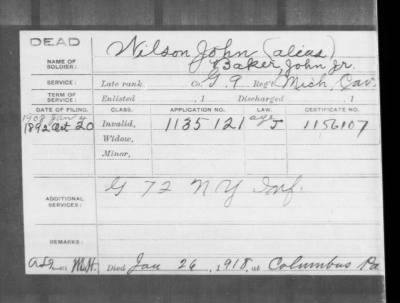 DEAD
NAME OF SOLDIER: Wilson John (alias)
Baker, John Jr.
SERVICE: Late rank Co. G 9 Reg't Mich. Cav.
TERM OF SERVICE: Enlisted , 1 Discharged , 1
DATE OF FILING. CLASS. APPLICATION NO. LAW. CERTIFICATE NO.
1908 Jan 4
1892 Oct 20 Invalid, 1135121 age J 1156107
Widow,
Minor,
ADDITIONAL SERVICES: G 72 N Y Inf.
REMARKS:
Died Jan 26, 1918, at Columbus Pa